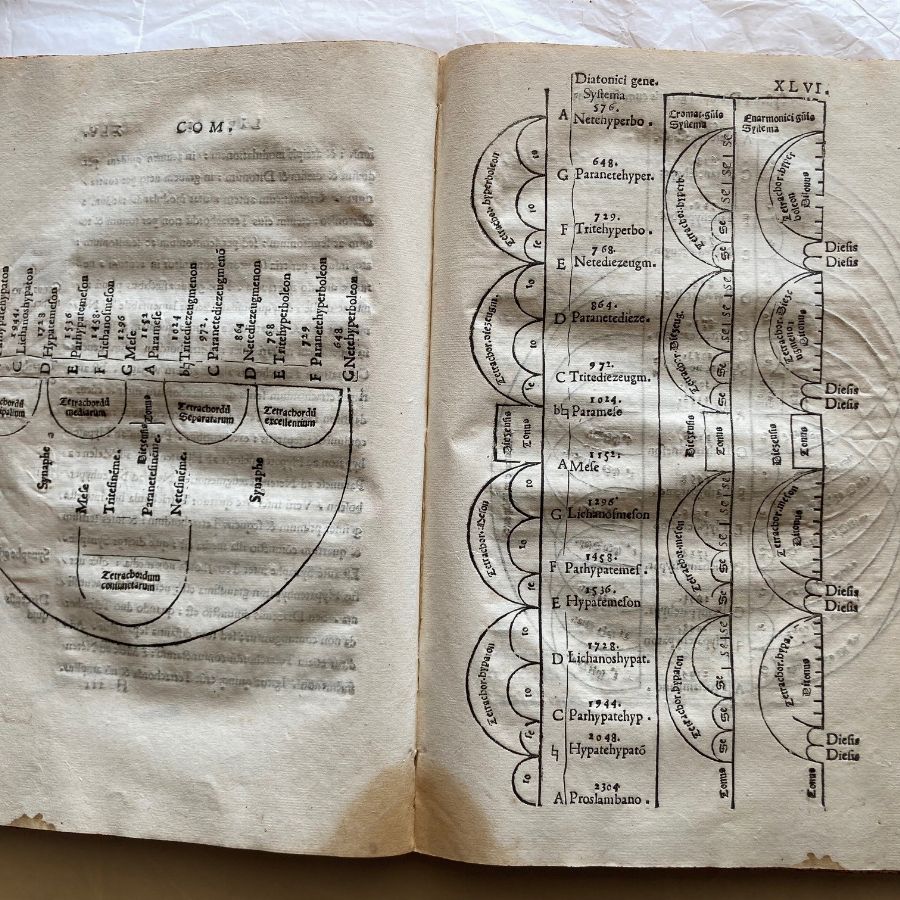 COM.
Lichanohypaton
1944.
C
Hypatemeson
1728
D
Parhypatemeson
1536
E
Lichanosmeson
1458.
F
Mese
1296
G
Paramese
1152
A
Tritediezeugmenon
1024
b♮
Paranetediezeugmenō
972.
C
Netediezeugmenon
864
D
Tritehyperboleon
768
E
Paranetehyperboleon
729
F
Netehyperboleon
648
G
Tetrachordū
mediarum
Tonus
Diezeusis
Tetrachordū
Separatarum
Tetrachordū
excellentium
Synaphe
Mese
Tritesinēme.
Paranetesinēme.
Netesinēme.
Synaphe
Tetrachordum
coniunctarum
XLVI.
Diatonici gene.
Systema
576.
A Netehyperbo.
648.
G Paranetehyper.
729.
F Tritehyperbo.
768.
E Netediezeugm.
864.
D Paranetedieze.
972.
C Tritediezeugm.
1024.
b♮ Paramese
1152.
A Mese
1296
G Lichanosmeson
1458.
F Parhypatemes.
1536.
E Hypatemeson
1728.
D Lichanoshypat.
1944.
C Parhypatehyp.
2048.
♮ Hypatehypatō
2304
A Proslambano.
Tetrachor.hyperboleon
to
to
se
Tetrachor.diezeugm.
to
to
se
Diezeusis
Tonus
Tetrachor.meson
to
to
se
Tetrachor.hypaton
to
to
se
to
Cromat.gn̄is
Systema
Tetrachor.hyperb.
se se se
se
se
Tetrachor.Diezeug.
se se se
se
se
Diezeusis
Tonus
Tetrachor.meson
se se se
se
se
Tetrachor.hypaton
se se se
se
se
Tonus
Enarmonici gn̄is
Systema
Tetrachor.hyper
boleon
Ditonus
Diesis
Diesis
Tetrachor.Diezeu
gmenon
Ditonus
Diesis
Diesis
Diezeusis
Tonus
Tetrachor.meson
Ditonus
Diesis
Diesis
Tetrachor.hypa.
Ditonus
Diesis
Diesis
Tonus